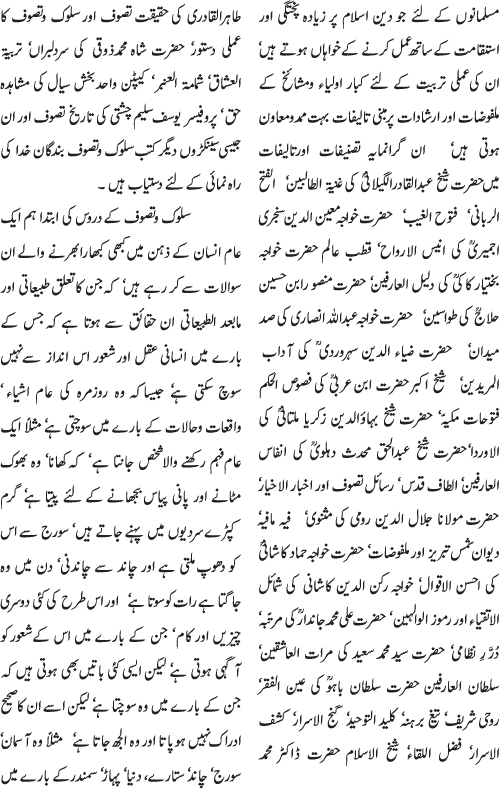 مسلمانوں کے لئے جو دین اسلام پر زیادہ پختگی اور
استقامت کے ساتھ عمل کرنے کے خواہاں ہوتے ہیں’
ان کی عملی تربیت کے لئے کبار اولیاء و مشائخ کے
ملفوضات اور ارشادات پر مبنی تالیفات بہت ممد و معاون
ہوتی ہیں’ ان گرانمایہ تصنیفات اور تالیفات
میں حضرت شیخ عبدالقادر الگیلانیؒ کی غنیة الطالبین’ الفتح
الربانی’ فتوح الغیب’ حضرت خواجہ معین الدین سنجری
اجمیریؒ کی انیس الارواح’ قطب عالم حضرت خواجہ
بختیار کاکیؒ کی دلیل العارفین’ حضرت منصور ابن حسین
حلاجؒ کی طواسین’ حضرت خواجہ عبداللہ انصاری کی صد
میدان’ حضرت ضیاء الدین سہروردیؒ کی آداب
المریدین’ شیخ اکبر حضرت ابن عربیؒ کی فصوص الحکم
فتوحات مکیہ’ حضرت شیخ بہاؤالدین زکریا ملتانیؒ کی
الاوردا’ حضرت شیخ عبدالحق محدث دہلویؒ کی انفاس
العارفین’ الطاف قدس’ رسائل تصوف اور اخبار الاخیار’
حضرت مولانا جلال الدین رومی کی مثنوی’ فیہ مافیہ’
دیوان شمس تبریز اور ملفوضات’ حضرت خواجہ حماد کاشانیؒ
کی احسن الاقوال’ خواجہ رکن الدین کاشانی کی شمائل
الاتقیاء اور رموز الوالہین’ حضرت علی محمد جاندارؒ کی مرتبہ’
دُرِّ نظامی’ حضرت سید محمد سعید کی مرات العاشقین’
سلطان العارفین حضرت سلطان باہوؒ کی عین الفقر’
روحی شریف’ تیغ برہنہ’ کلید التوحید’ گنج الاسرار’ کشف
الاسرار’ فضل اللقاء’ شیخ الاسلام حضرت ڈاکٹر محمد
طاہرالقادری کی حقیقت تصوف اور سلوک و تصوف کا
عملی دستور’ حضرت شاہ محمد ذوقی کی سردلبراں’ تربیة
العشاق’ شمامة العنبر’ کیپٹن واحد بخش سیال کی مشاہدہ
حق’ پروفیسر یوسف سلیم چشتی کی تاریخ تصوف اور ان
جیسی سینکڑوں دیگر کتب سلوک و تصوف بندگان خدا کی
راہ نمائی کے لئے دستیاب ہیں ۔
سلوک و تصوف کے دروس کی ابتدا ہم ایک
عام انسان کے ذہن میں کبھی کبھار ابھرنے والے ان
سوالات سے کر رہے ہیں’ کہ جن کا تعلق طبیعاتی اور
مابعد الطبیعاتی ان حقائق سے ہوتا ہے کہ جس کے
بارے میں انسانی عقل اور شعور اس انداز سے نہیں
سوچ سکتی ہے’ جیسا کہ وہ روزمرہ کی عام اشیاء’
واقعات و حالات کے بارے میں سوچتی ہے’ مثلاً ایک
عام فہم رکھنے والا شخص جانتا ہے’ کہ کھانا’ وہ بھوک
مٹانے اور پانی پیاس بجھانے کے لئے پیتا ہے’ گرم
کپڑے سردیوں میں پہنے جاتے ہیں’ سورج سے اس
کو دھوپ ملتی ہے اور چاند سے چاندنی’ دن میں وہ
جاگتا ہے رات کو سوتا ہے’ اور اس طرح کی کئی دوسری
چیزیں اور کام’ جن کے بارے میں اس کے شعور کو
آگہی ہوتی ہے’ لیکن ایسی کئی باتیں بھی ہوتی ہیں کہ
جن کے بارے میں وہ سوچتا ہے’ لیکن اسے ان کا صحیح
ادراک نہیں ہو پاتا اور وہ الجھ جاتا ہے’ مثلاً وہ آسمان’
سورج’ چاند’ ستارے، دنیا’ پہاڑ’ سمندر کے بارے میں